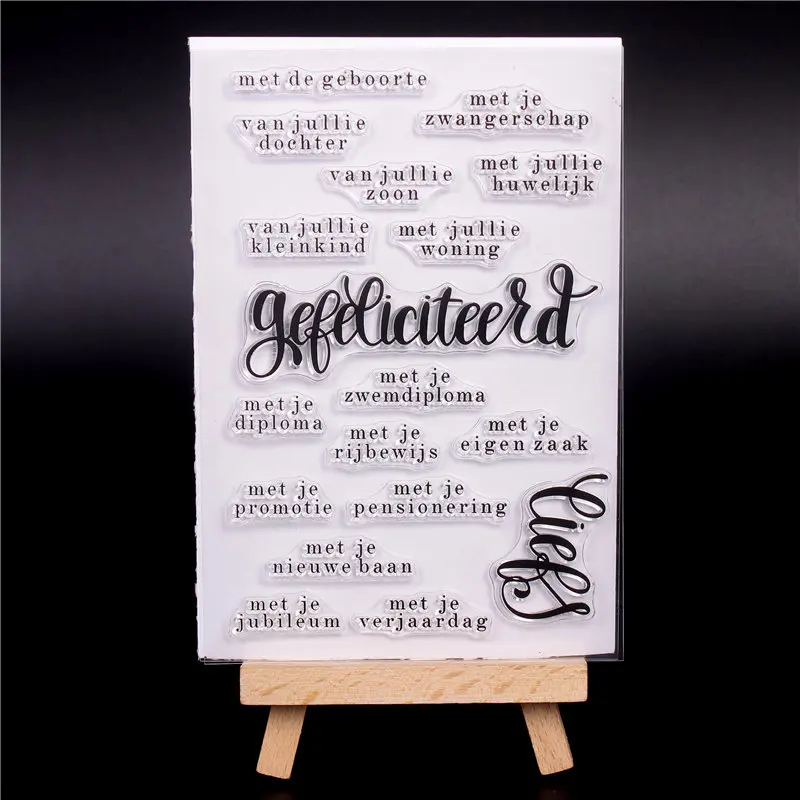 met de geboorte
met je
zwangerschap
van jullie
dochter
met jullie
huwelijk
van jullie
zoon
van jullie
kleinkind
met jullie
woning
gefeliciteerd
met je
zwemdiploma
met je
diploma
met je
rijbewijs
met je
eigen zaak
met je
promotie
met je
pensionering
liefs
met je
nieuwe baan
met je
jubileum
met je
verjaardag